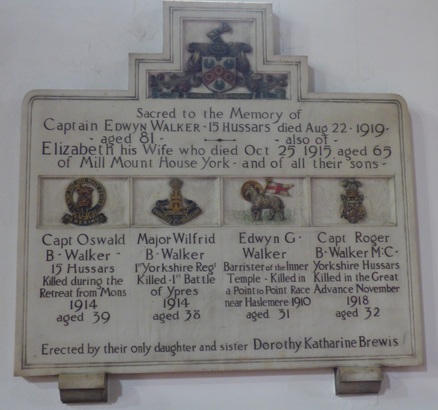 Sacred to the Memory of
Captain EDWYN WALKER - 15 HUSSARS died Aug 22 - 1919 -
- aged 81 - - also of -
ELIZABETH his Wife who died Oct 25 1915 aged 65
of Mill Mount House York - and of all their sons -
Capt Oswald
B - Walker -
15 Hussars
Killed during the
Retreat from Mons
1914
aged 39
Major Wilfrid
B - Walker
1st Yorkshire Regt
Killed - 1st Battle
of Ypres
1914
aged 38
Edwyn G -
Walker
Barrister of the Inner
Temple - Killed in
a Point to Point Race
near Haslemere - 1910
aged 31
Capt Roger
B - Walker M·C·
Yorkshire Hussars
Killed in the Great
Advance November
1918
aged 32
Erected by their only daughter and sister Dorothy Katharine Brewis